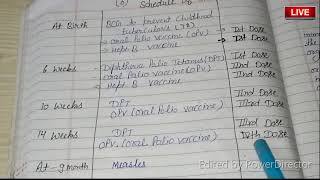 (6) Schedule
LIVE
At Birth BCG to prevent Childhood
tuberculosis (TB)
→ Oral Polio Vaccine (OPV) Ist Dose
→ Hept. B vaccine Ist Dose
6 Weeks Diphtheria Polio Tetanus (DPT) Ist Dose
Oral Polio vaccine (OPV) IInd Dose
Hept B vaccine IInd Dose
10 Weeks DPT IInd Dose
OPV (Oral Polio vaccine) IIIrd Dose
14 Weeks DPT IIIrd Dose
OPV (Oral Polio vaccine) IVth Dose
At - 9 month Measles
Edited by PowerDirector